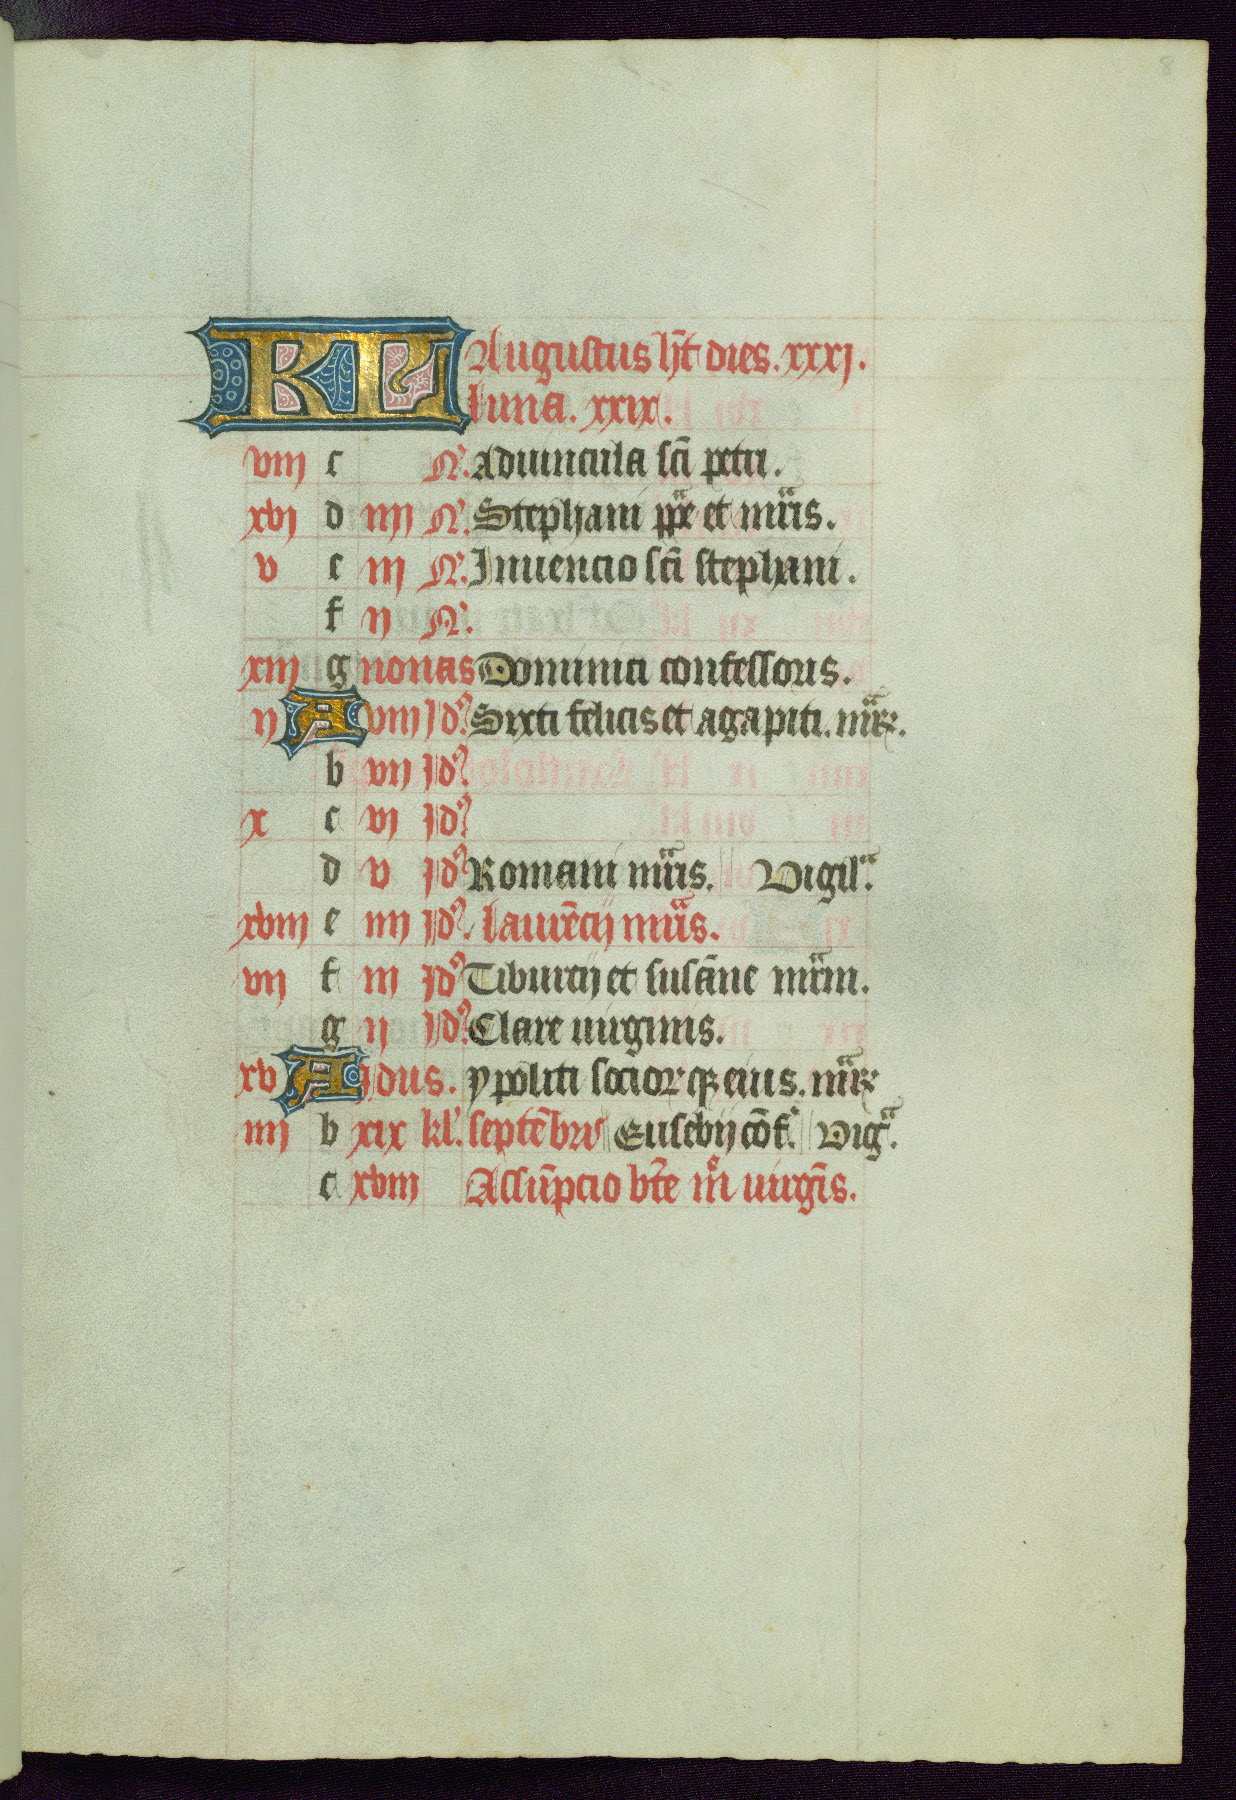 8
KL Augustus ht̄ dies. xxxj.
luna. xxix.
viij c N. Aduincula sc̄i petri.
xvj d iiij N. Stephani pp̄e et mr̄is.
v e iij N. Inuencio sc̄i stephani.
f ij N.
xiij g nonas Dominici confessoris.
ij A viij Jdꝰ Sixti felicis et agapiti. mr̄ꝝ.
b vij Jdꝰ
x c vj Jdꝰ
d v Jdꝰ Romani mr̄is. Vigilᵃ.
xviij e iiij Jdꝰ. laurēcij mr̄is.
vij f iij Jdꝰ Tiburcij et susāne mr̄m.
g ij Jdꝰ Clare uirginis.
xv A jdus. ypoliti sociorꝙ eius. mr̄ꝝ
iiij b xix kl'. septēbris Eusebij cōf. vigᵃ.
c xviij Assūpcio bt̄e mͬi uirgīs.